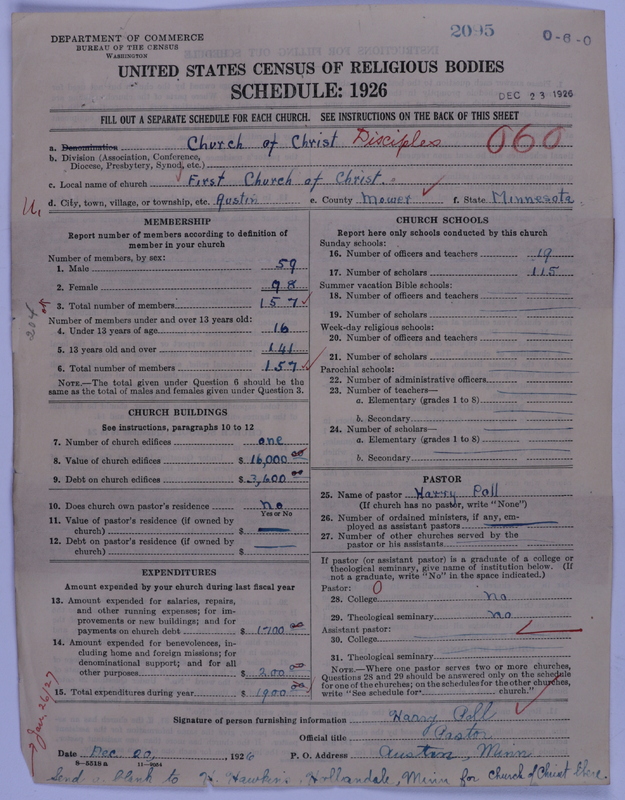 2095
0-6-0
DEPARTMENT OF COMMERCE
BUREAU OF THE CENSUS
WASHINGTON
UNITED STATES CENSUS OF RELIGIOUS BODIES
SCHEDULE: 1926
DEC 23 1926
FILL OUT A SEPARATE SCHEDULE FOR EACH CHURCH. SEE INSTRUCTIONS ON THE BACK OF THIS SHEET
a. Denomination Church of Christ Disciples 060
b. Division (Association, Conference,
Diocese, Presbytery, Synod, etc.)
c. Local name of church First Church of Christ.
d. City, town, village, or township, etc. Austin e. County Mower f. State Minnesota
MEMBERSHIP
Report number of members according to definition of
member in your church
Number of members, by sex:
1. Male 59
2. Female 98
3. Total number of members 157
204
Number of members under and over 13 years old:
4. Under 13 years of age 16
5. 13 years old and over 141
6. Total number of members 157
NOTE.—The total given under Question 6 should be the
same as the total of males and females given under Question 3.
CHURCH BUILDINGS
See instructions, paragraphs 10 to 12
7. Number of church edifices one
8. Value of church edifices $ 16,000 00
9. Debt on church edifices $ 3,600 00
10. Does church own pastor's residence no
Yes or No
11. Value of pastor's residence (if owned by
church) $
12. Debt on pastor's residence (if owned by
church) $
EXPENDITURES
Amount expended by your church during last fiscal year
13. Amount expended for salaries, repairs,
and other running expenses; for im-
provements or new buildings; and for
payments on church debt $ 1700 00
14. Amount expended for benevolences, in-
cluding home and foreign missions; for
denominational support; and for all
other purposes $ 200 00
15. Total expenditures during year $ 1900 00
CHURCH SCHOOLS
Report here only schools conducted by this church
Sunday schools:
16. Number of officers and teachers 19
17. Number of scholars 115
Summer vacation Bible schools:
18. Number of officers and teachers
19. Number of scholars
Week-day religious schools:
20. Number of officers and teachers
21. Number of scholars
Parochial schools:
22. Number of administrative officers
23. Number of teachers—
a. Elementary (grades 1 to 8)
b. Secondary
24. Number of scholars—
a. Elementary (grades 1 to 8)
b. Secondary
PASTOR
25. Name of pastor Harry Poll
(If church has no pastor, write "None")
26. Number of ordained ministers, if any, em-
ployed as assistant pastors
27. Number of other churches served by the
pastor or his assistants
If pastor (or assistant pastor) is a graduate of a college or
theological seminary, give name of institution below. (If
not a graduate, write "No" in the space indicated.)
Pastor: 0
28. College no
29. Theological seminary no
Assistant pastor:
30. College
31. Theological seminary
NOTE.—Where one pastor serves two or more churches,
Questions 28 and 29 should be answered only on the schedule
for one of the churches; on the schedules for the other churches,
write "See schedule for church."
Jan. 26/27
Signature of person furnishing information Harry Poll
Official title Pastor
Date Dec 20, 1926 P. O. Address Austin, Minn
8-5518 a 11-9054
Send a blank to H. Hawkins, Hollandale, Minn for Church of Christ